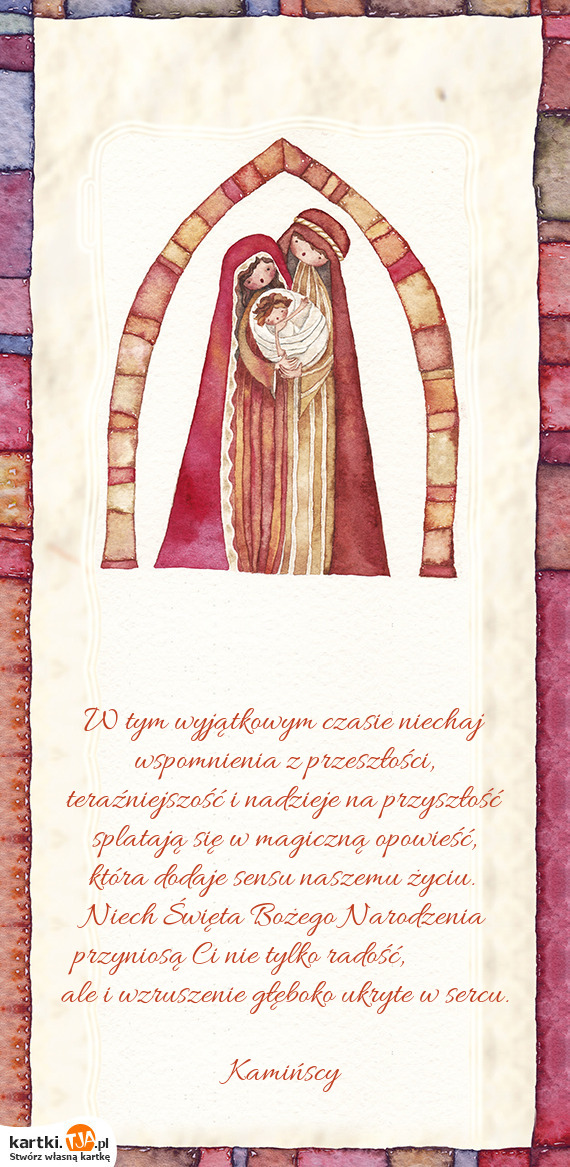 W tym wyjątkowym czasie niechaj
wspomnienia z przeszłości,
teraźniejszość i nadzieje na przyszłość
splatają się w magiczną opowieść,
która dodaje sensu naszemu życiu.
Niech Święta Bożego Narodzenia
przyniosą Ci nie tylko radość,
ale i wzruszenie głęboko ukryte w sercu.
Kamińscy
kartki.TJA.pl
Stwórz własną kartkę